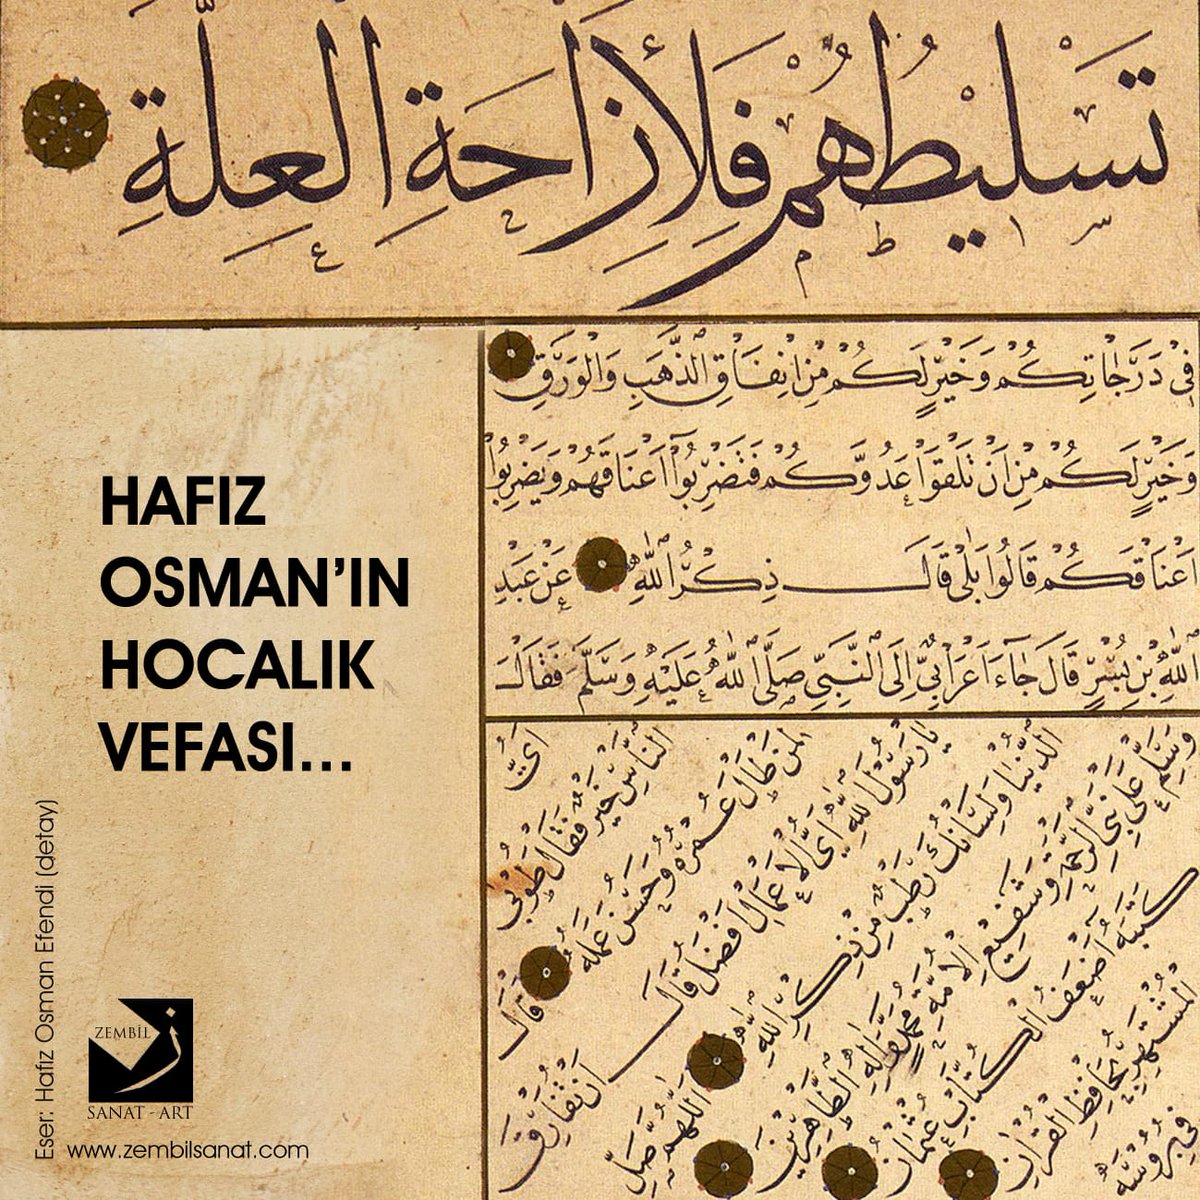 تَسْلِيطُهُمْ فَلِأَزَاحَةِ الْعِلَّةِ
فِي دَرَجَاتِكُمْ وَخَيْرٍ لَكُمْ مِنْ اِنْفَاقِ الذَّهَبِ وَالْوَرَقِ
وَخَيْرٍ لَكُمْ مِنْ اَنْ تَلْقَوْا عَدُوَّكُمْ فَتَضْرِبُوا اَعْنَاقَهُمْ وَيَضْرِبُوا
اَعْنَاقَكُمْ قَالُوا بَلٰى قَالَ ذِكْرُ اللّٰهِ عَنْ عَبْدِ
اللّٰهِ بْنِ بُسْرٍ قَالَ جَاءَ اَعْرَابِيٌّ اِلَى النَّبِيِّ صَلَّى اللّٰهُ عَلَيْهِ وَسَلَّمَ فَقَالَ
اَيُّ
النَّاسِ خَيْرٌ فَقَالَ طُوبٰى
لِمَنْ طَالَ عُمْرُهُ وَحَسُنَ عَمَلُهُ قَالَ
يَا رَسُولَ اللّٰهِ اَيُّ الْاَعْمَالِ اَفْضَلُ قَالَ
اَنْ تُفَارِقَ
الدُّنْيَا وَلِسَانُكَ رَطْبٌ مِنْ ذِكْرِ اللّٰهِ
اَللّٰهُمَّ صَلِّ
وَسَلِّمْ عَلٰى نَبِيِّ الرَّحْمَةِ وَشَفِيعِ الْاُمَّةِ مُحَمَّدٍ وَاٰلِهِ الطَّاهِرِينَ
كَتَبَهُ اَضْعَفُ الْكُتَّابِ عُثْمَانُ
الْمُشْتَهِرُ بِحَافِظِ الْقُرْاٰنِ
HAFIZ
OSMAN'IN
HOCALIK
VEFASI...
Eser: Hafız Osman Efendi (detay)
ZEMBİL
SANAT - ART
www.zembilsanat.com